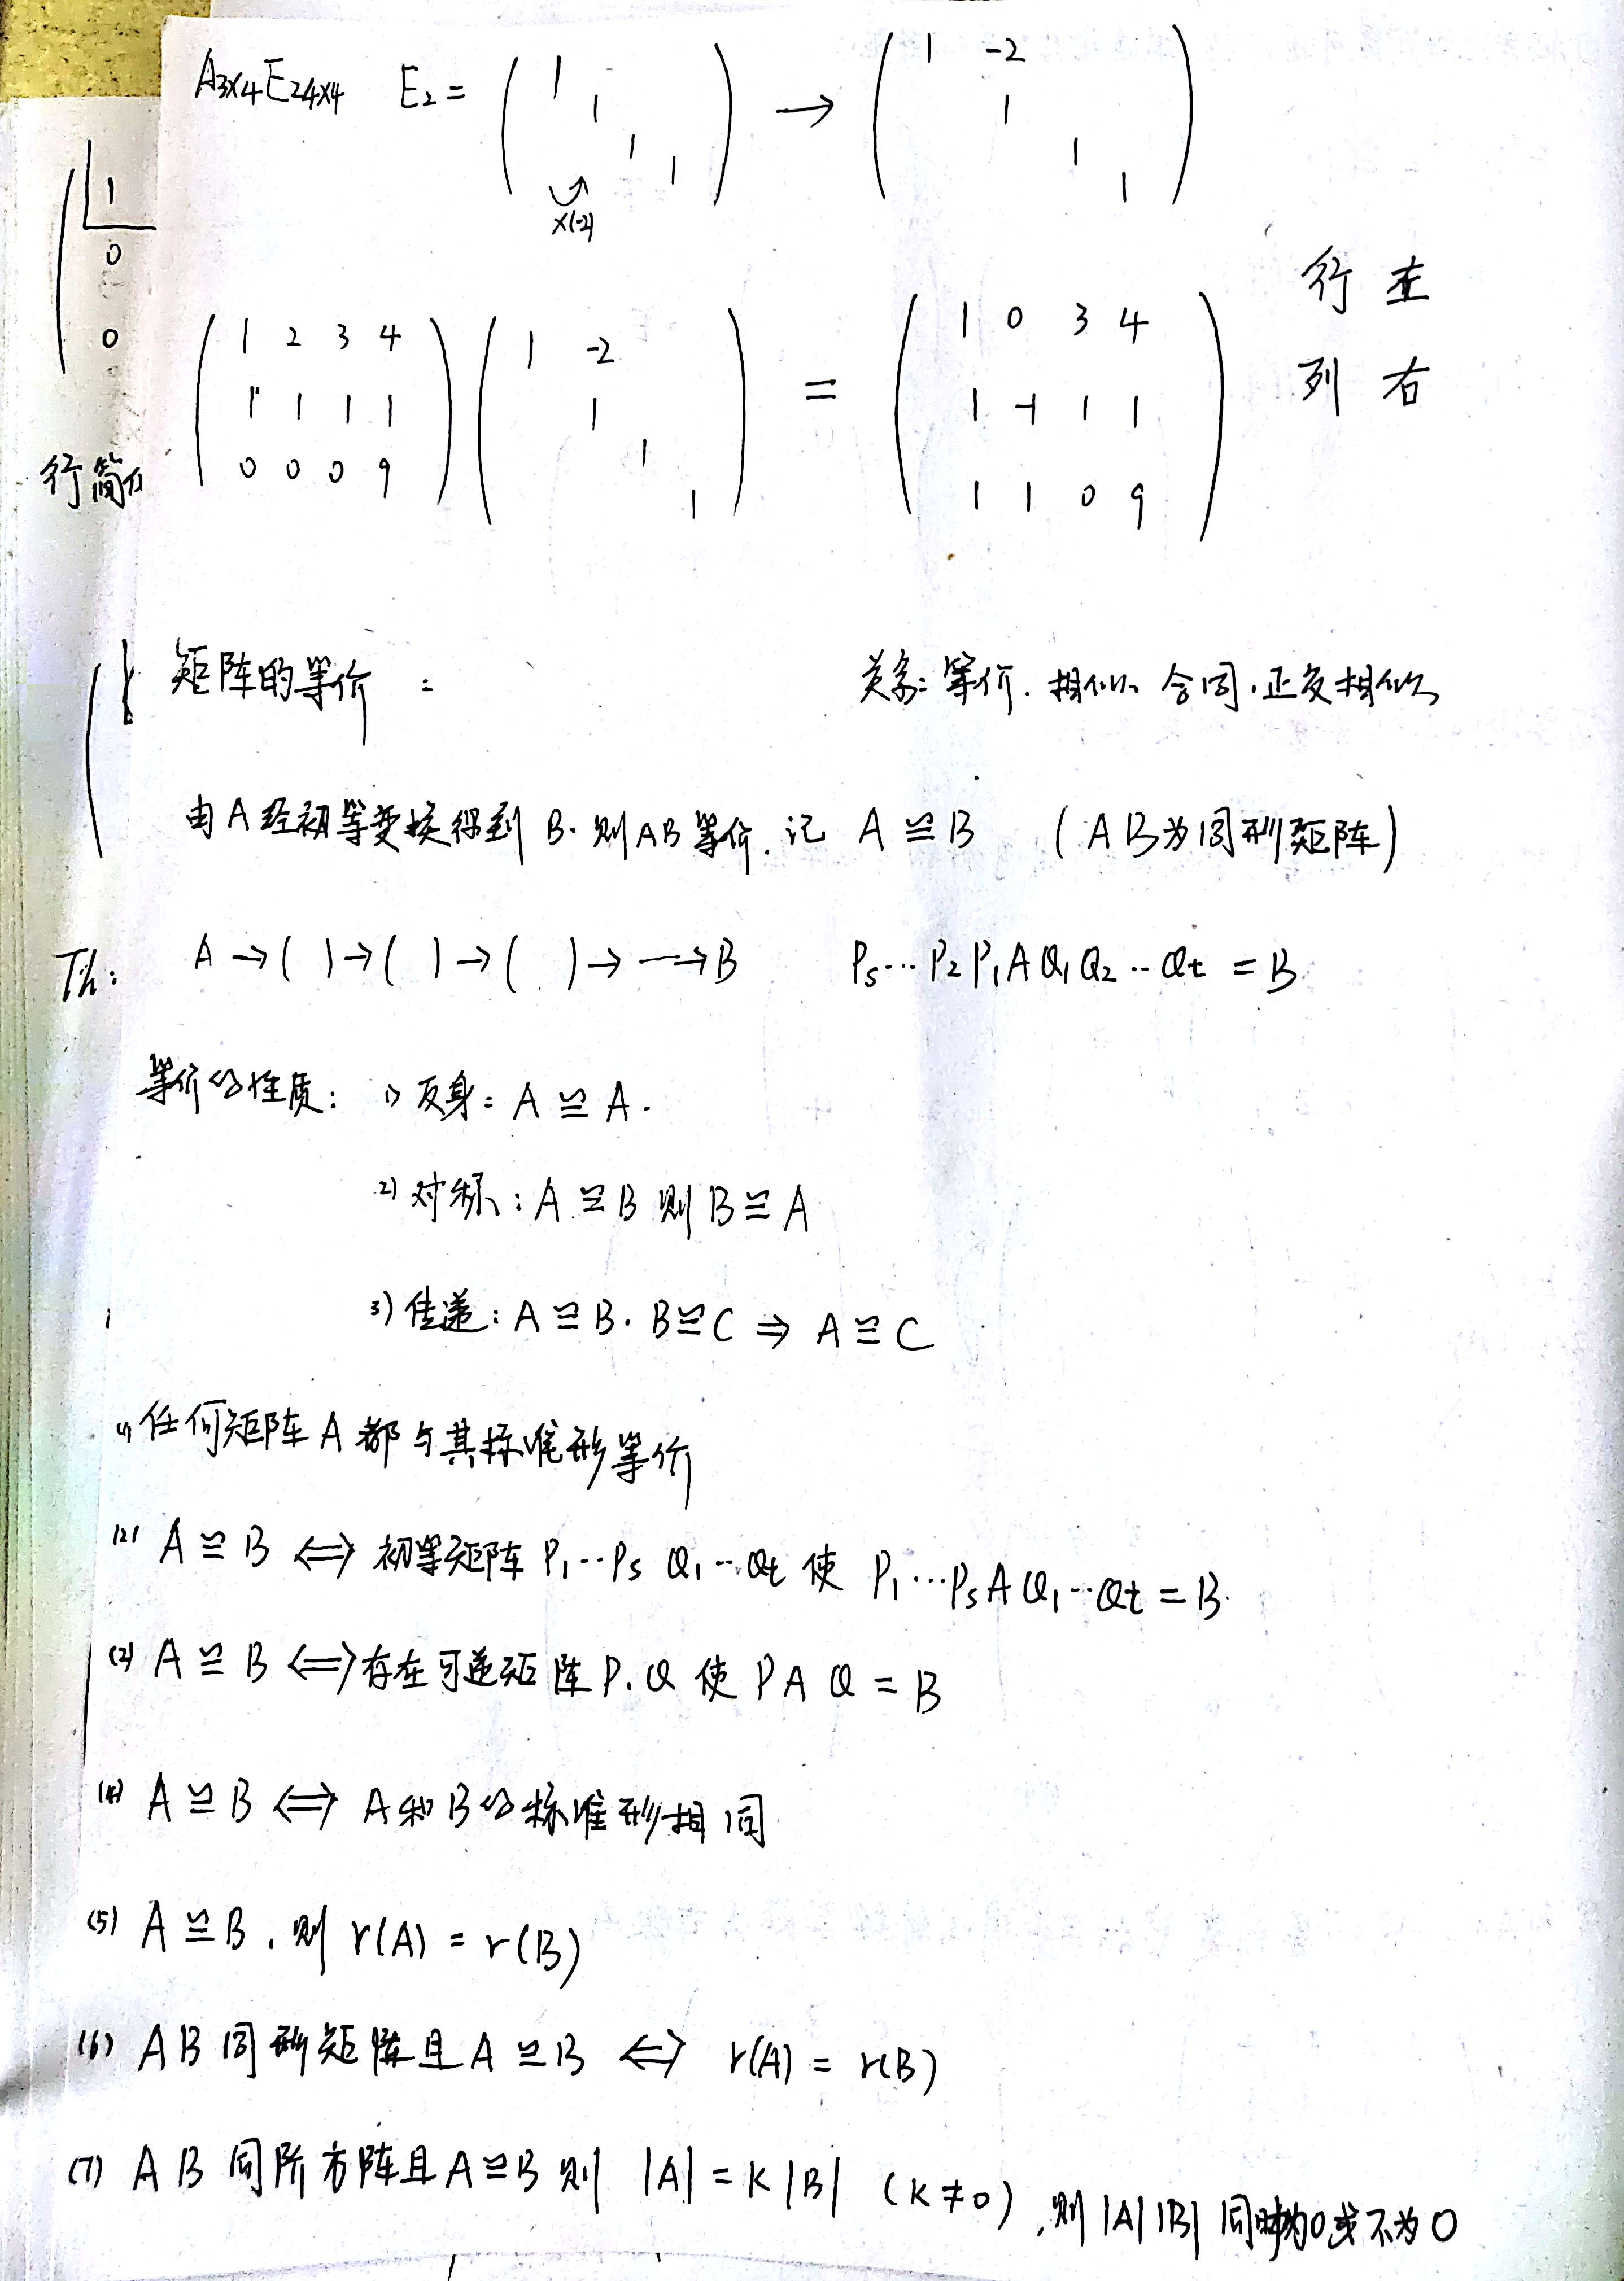 A3×4E24×4 E2 = ( 1 1 1 1 ) → ( 1 -2 1 1 1 )
×(-2)
1
0
0
行 左
列 右
( 1 2 3 4 ) ( 1 -2 ) = ( 1 0 3 4 )
( 1 1 1 1 ) ( 1 ) ( 1 -1 1 1 )
( 0 0 0 9 ) ( 1 1 ) ( 1 1 0 9 )
行简
矩阵的等价: 关系: 等价. 相似、合同. 正交相似
由A经初等变换得到 B. 则AB等价. 记 A ≌ B (AB为同形矩阵)
Th: A → ( ) → ( ) → ( ) → → B Ps…P2P1AQ1Q2…Qt = B
等价的性质: 1) 反身: A ≌ A.
2) 对称: A ≌ B 则 B ≌ A
3) 传递: A ≌ B. B ≌ C ⇒ A ≌ C
(1) 任何矩阵A都与其标准形等价
(2) A ≌ B ⟺ 初等矩阵 P1…Ps Q1…Qt 使 P1…PsAQ1…Qt = B.
(3) A ≌ B ⟺ 存在可逆矩阵P.Q 使 PAQ = B
(4) A ≌ B ⟺ A和B的标准形相同
(5) A ≌ B. 则 r(A) = r(B)
(6) AB同形矩阵且A ≌ B ⟺ r(A) = r(B)
(7) AB同阶方阵且A ≌ B 则 |A| = K|B| (K≠0), 则|A||B|同时为0或不为0